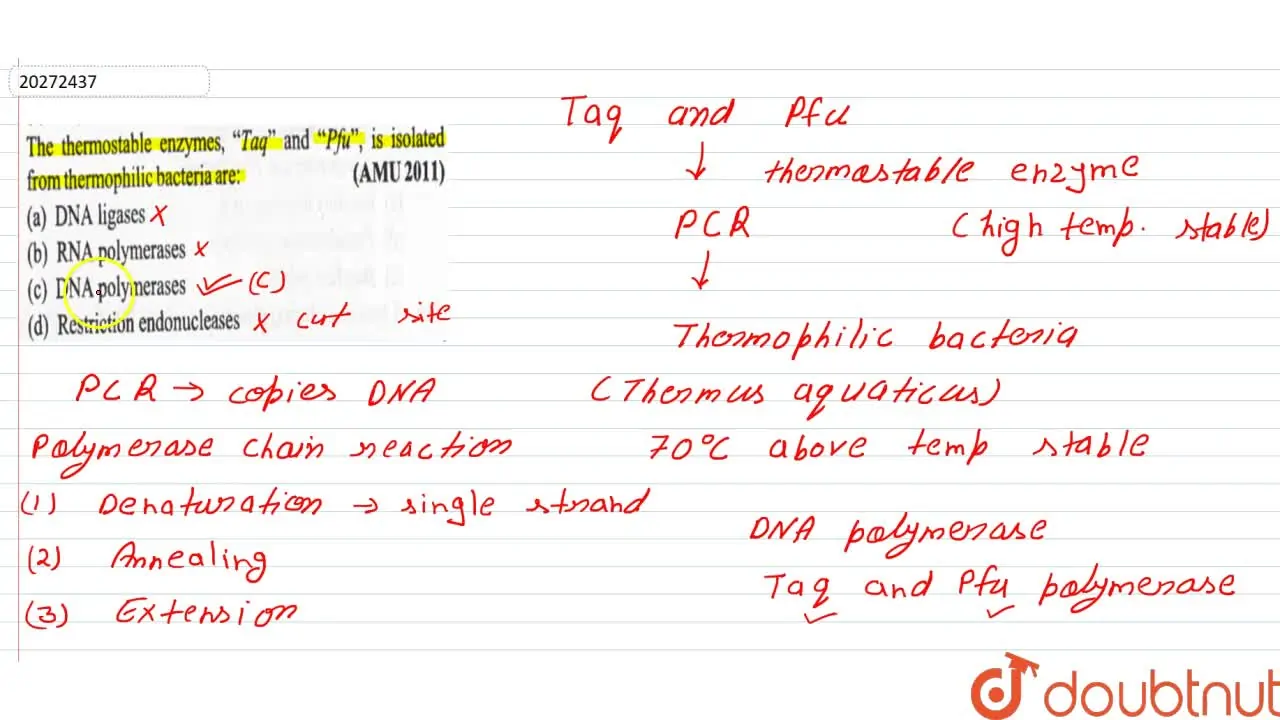 20272437
The thermostable enzymes, “Taq” and “Pfu”, is isolated
from thermophilic bacteria are: (AMU 2011)
(a) DNA ligases X
(b) RNA polymerases x
(c) DNA polymerases ✓ (c)
(d) Restriction endonucleases x cut site
PCR → copies DNA
Polymerase chain reaction
(1) Denaturation → single strand
(2) Annealing
(3) Extension
Taq and Pfu
↓ thermostable enzyme
PCR (high temp. stable)
↓
Thermophilic bacteria
(Thermus aquaticus)
70°C above temp stable
DNA polymerase
Taq and Pfu polymerase
✓ ✓
doubtnut